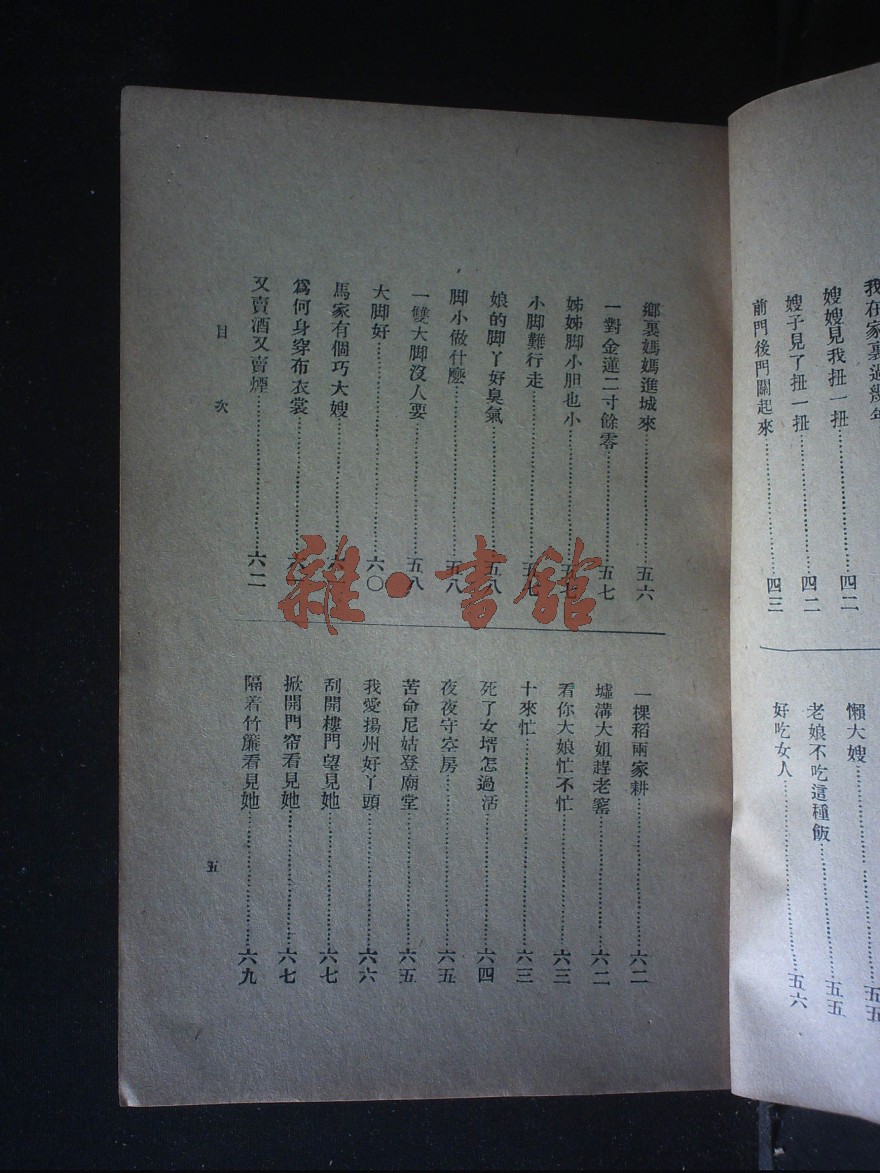 我在家裏過幾年
嫂嫂見我扭一扭……四二
嫂子見了扭一扭……四二
前門後門關起來……四三
懶大嫂……五五
老娘不吃這種飯……五五
好吃女人……五六
鄉裏媽媽進城來……五六
一對金蓮二寸餘零……五七
姊姊脚小胆也小……五七
小脚難行走……五七
娘的脚丫好臭氣……五八
脚小做什麽……五八
一雙大脚沒人要……五八
大脚好……六〇
馬家有個巧大嫂……六
爲何身穿布衣裳……六
又賣酒又賣煙……六二
一棵稻兩家耕……六二
墟溝大姐趕老窰……六二
看你大娘忙不忙……六三
十來忙……六三
死了女壻怎過活……六四
夜夜守空房……六五
苦命尼姑登廟堂……六五
我愛揚州好丫頭……六六
刮開樓門望見她……六七
掀開門帘看見她……六七
隔着竹簾看見她……六九
目次
五
雜·書館